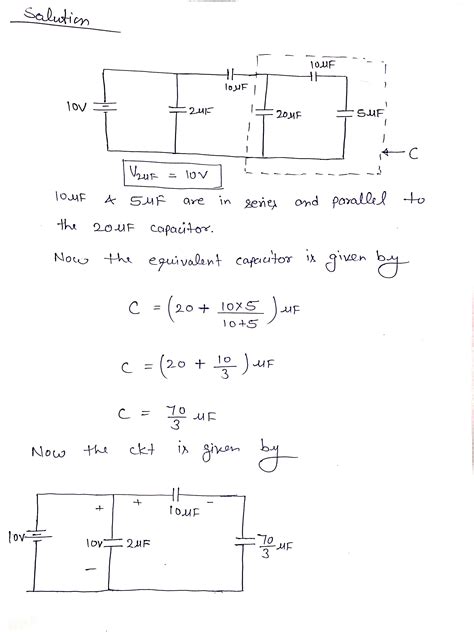 Solution
10μF
10μF
10V
2μF
20μF
5μF
C
V2μF = 10V
10μF & 5μF are in series and parallel to
the 20μF capacitor.
Now the equivalent capacitor is given by
C = (20 + 10×5/10+5) μF
C = (20 + 10/3) μF
C = 70/3 μF
Now the ckt is given by
+ + -
10μF
10V
10V 2μF
70/3 μF
-